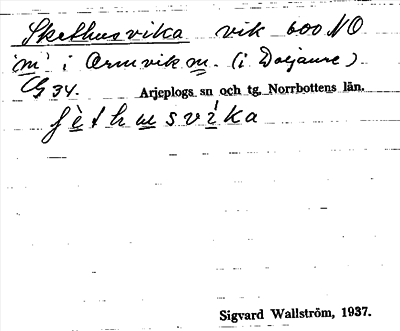 Skethusvika vik 600 NO
"m" i Armvikm. (i Doljaure)
CG 34. Arjeplogs sn och tg, Norrbottens län.
ʃèthusvíka
Sigvard Wallström, 1937.